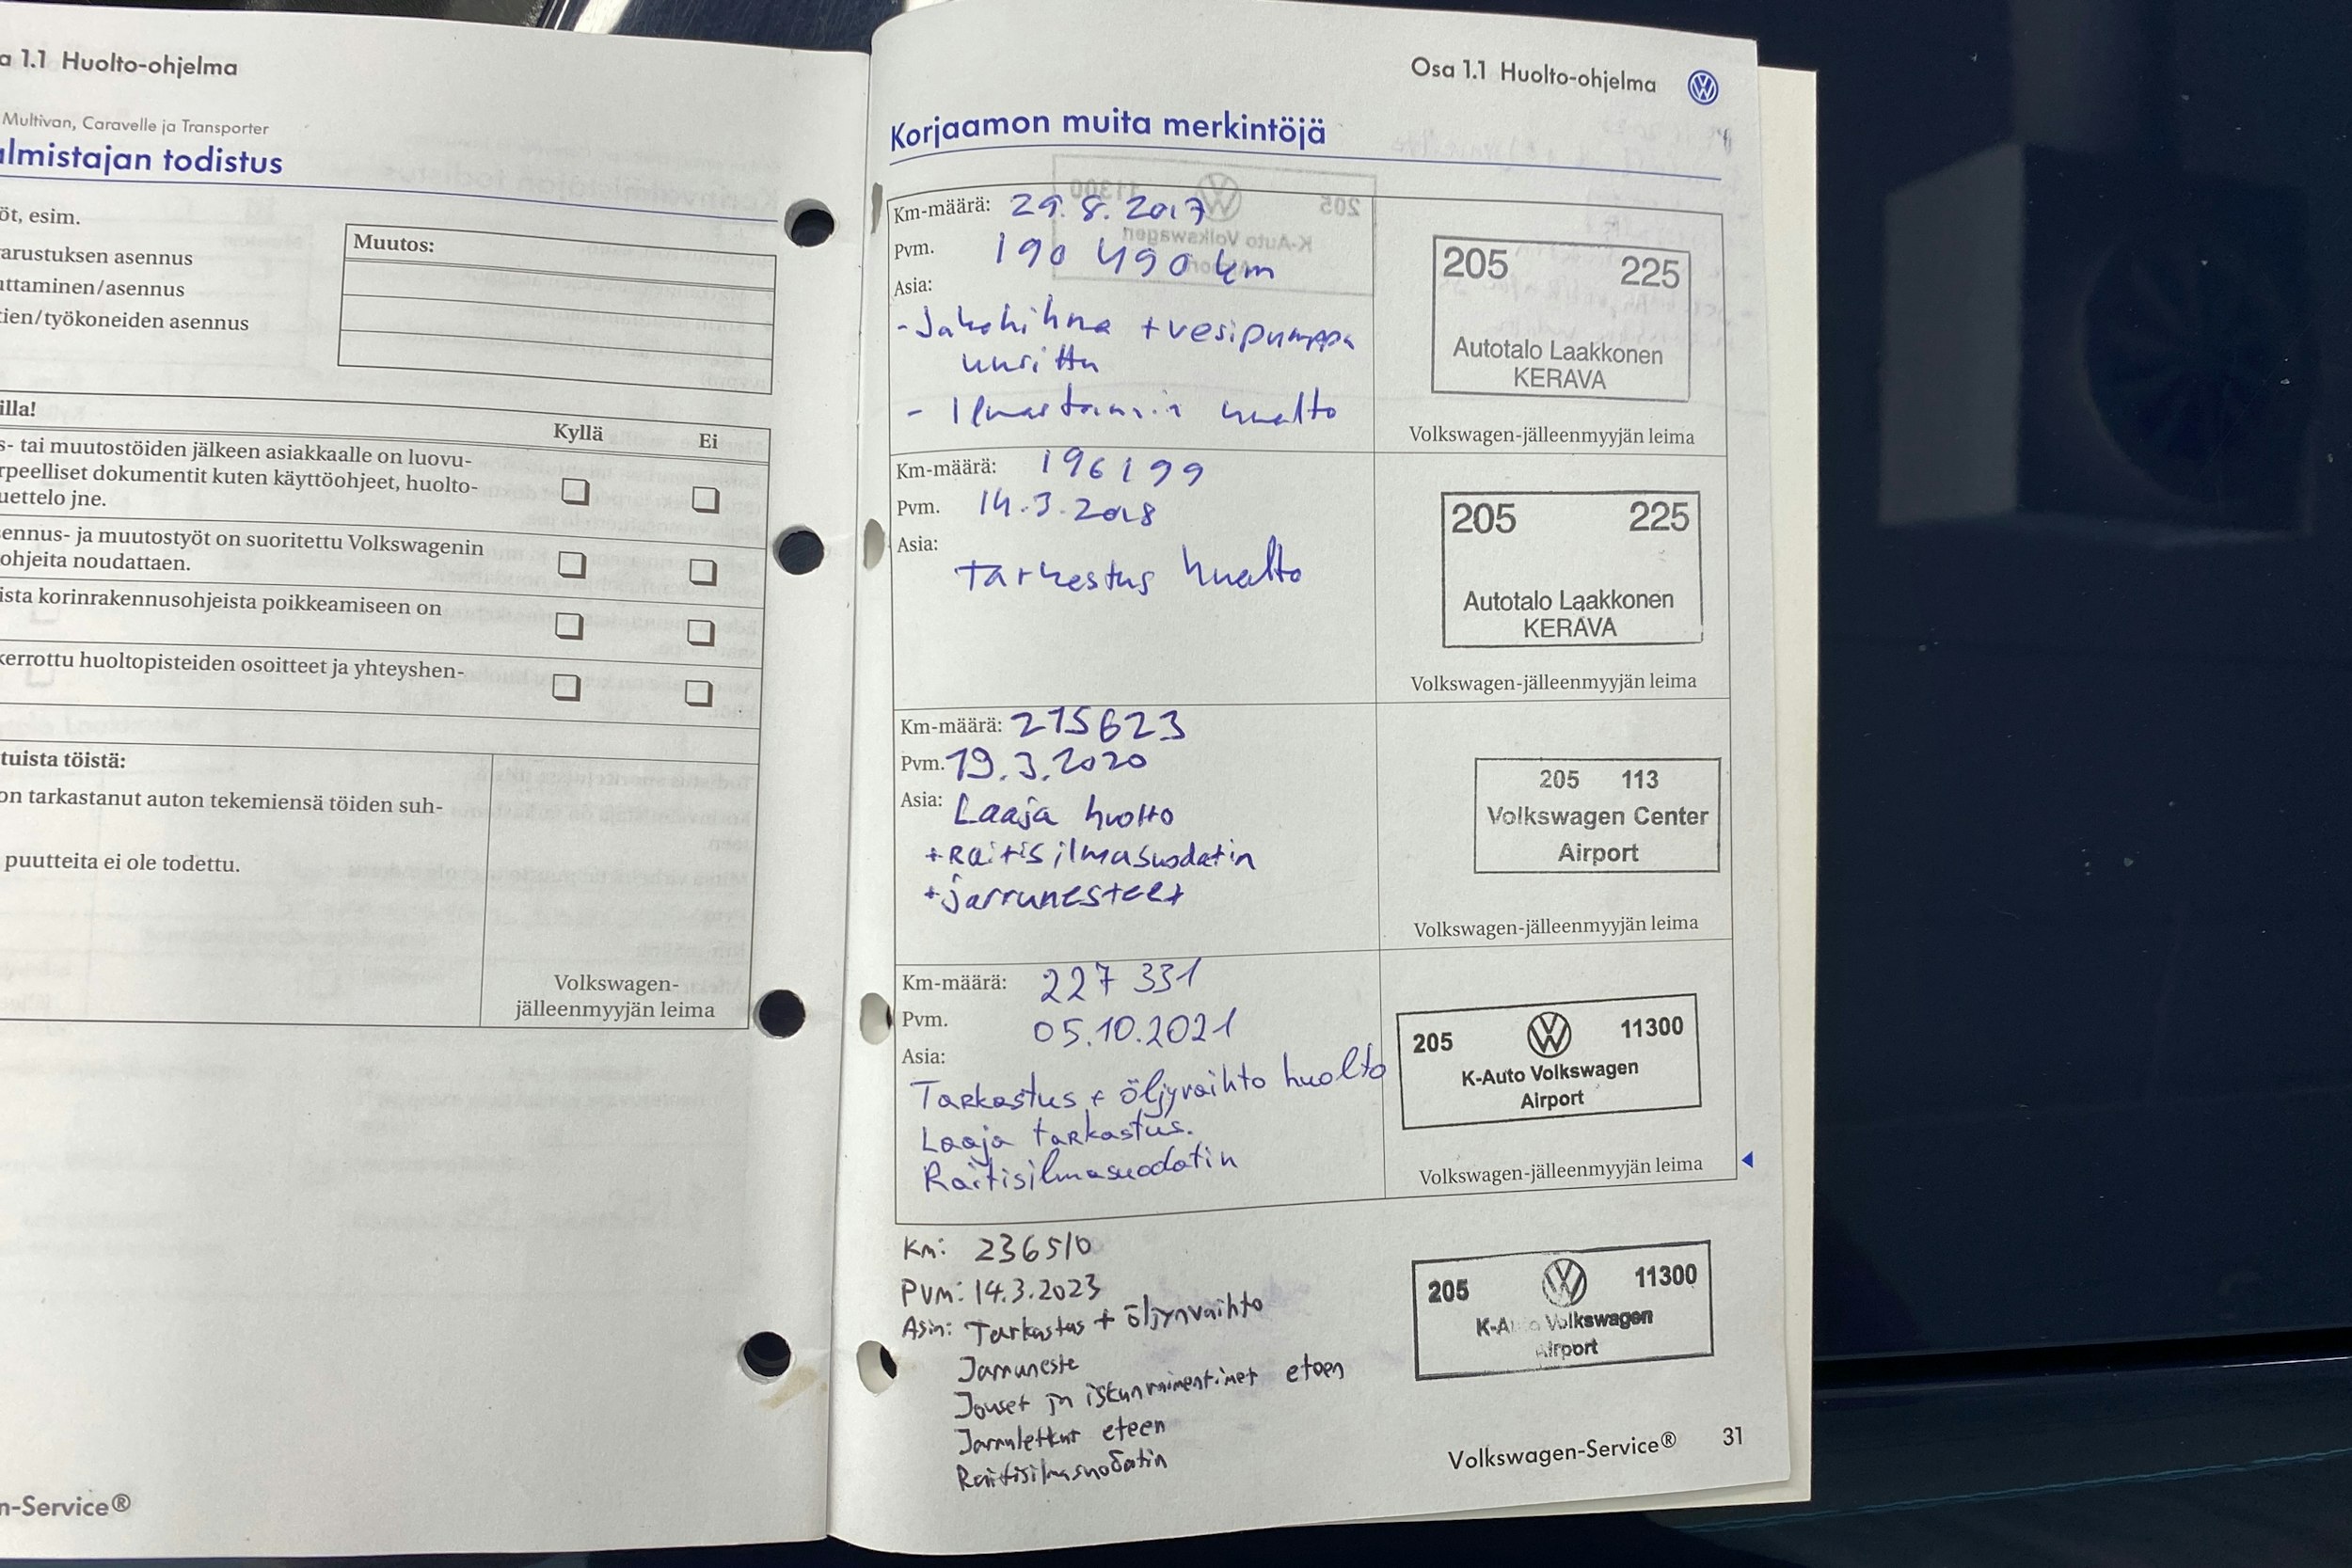 a 1.1 Huolto-ohjelma
Multivan, Caravelle ja Transporter
almistajan todistus
öt, esim.
arustuksen asennus
uttaminen/asennus
tien/työkoneiden asennus
Muutos:
illa!
Kyllä Ei
s- tai muutostöiden jälkeen asiakkaalle on luovu-
rpeelliset dokumentit kuten käyttöohjeet, huolto-
uettelo jne.
sennus- ja muutostyöt on suoritettu Volkswagenin
ohjeita noudattaen.
ista korinrakennusohjeista poikkeamiseen on
kerrottu huoltopisteiden osoitteet ja yhteyshen-
tuista töistä:
on tarkastanut auton tekemiensä töiden suh-
puutteita ei ole todettu.
Volkswagen-
jälleenmyyjän leima
n-Service®
Osa 1.1 Huolto-ohjelma
Korjaamon muita merkintöjä
Km-määrä: 29.8.2017
Pvm. 190 490 km
Asia:
- Jakohihna + vesipumppa
uusittu
- Ilmastoinnin huolto
205 225
Autotalo Laakkonen
KERAVA
Volkswagen-jälleenmyyjän leima
Km-määrä: 196199
Pvm. 14.3.2018
Asia:
Tarkestus huolto
205 225
Autotalo Laakkonen
KERAVA
Volkswagen-jälleenmyyjän leima
Km-määrä: 215623
Pvm. 19.3.2020
Asia: Laaja huolto
+Raitisilmasuodatin
+jarrunesteet
205 113
Volkswagen Center
Airport
Volkswagen-jälleenmyyjän leima
Km-määrä: 227 331
Pvm. 05.10.2021
Asia:
Tarkastus + öljyvaihto huolto
Laaja tarkastus.
Raitisilmasuodatin
205 11300
K-Auto Volkswagen
Airport
Volkswagen-jälleenmyyjän leima
Km: 236510
Pvm: 14.3.2023
Asia: Tarkastus + öljynvaihto
Jarruneste
Jouset ja iskunvaimentimet eteen
Jarruletkut eteen
Raitisilmasuodatin
205 11300
K-Auto Volkswagen
Airport
Volkswagen-Service® 31